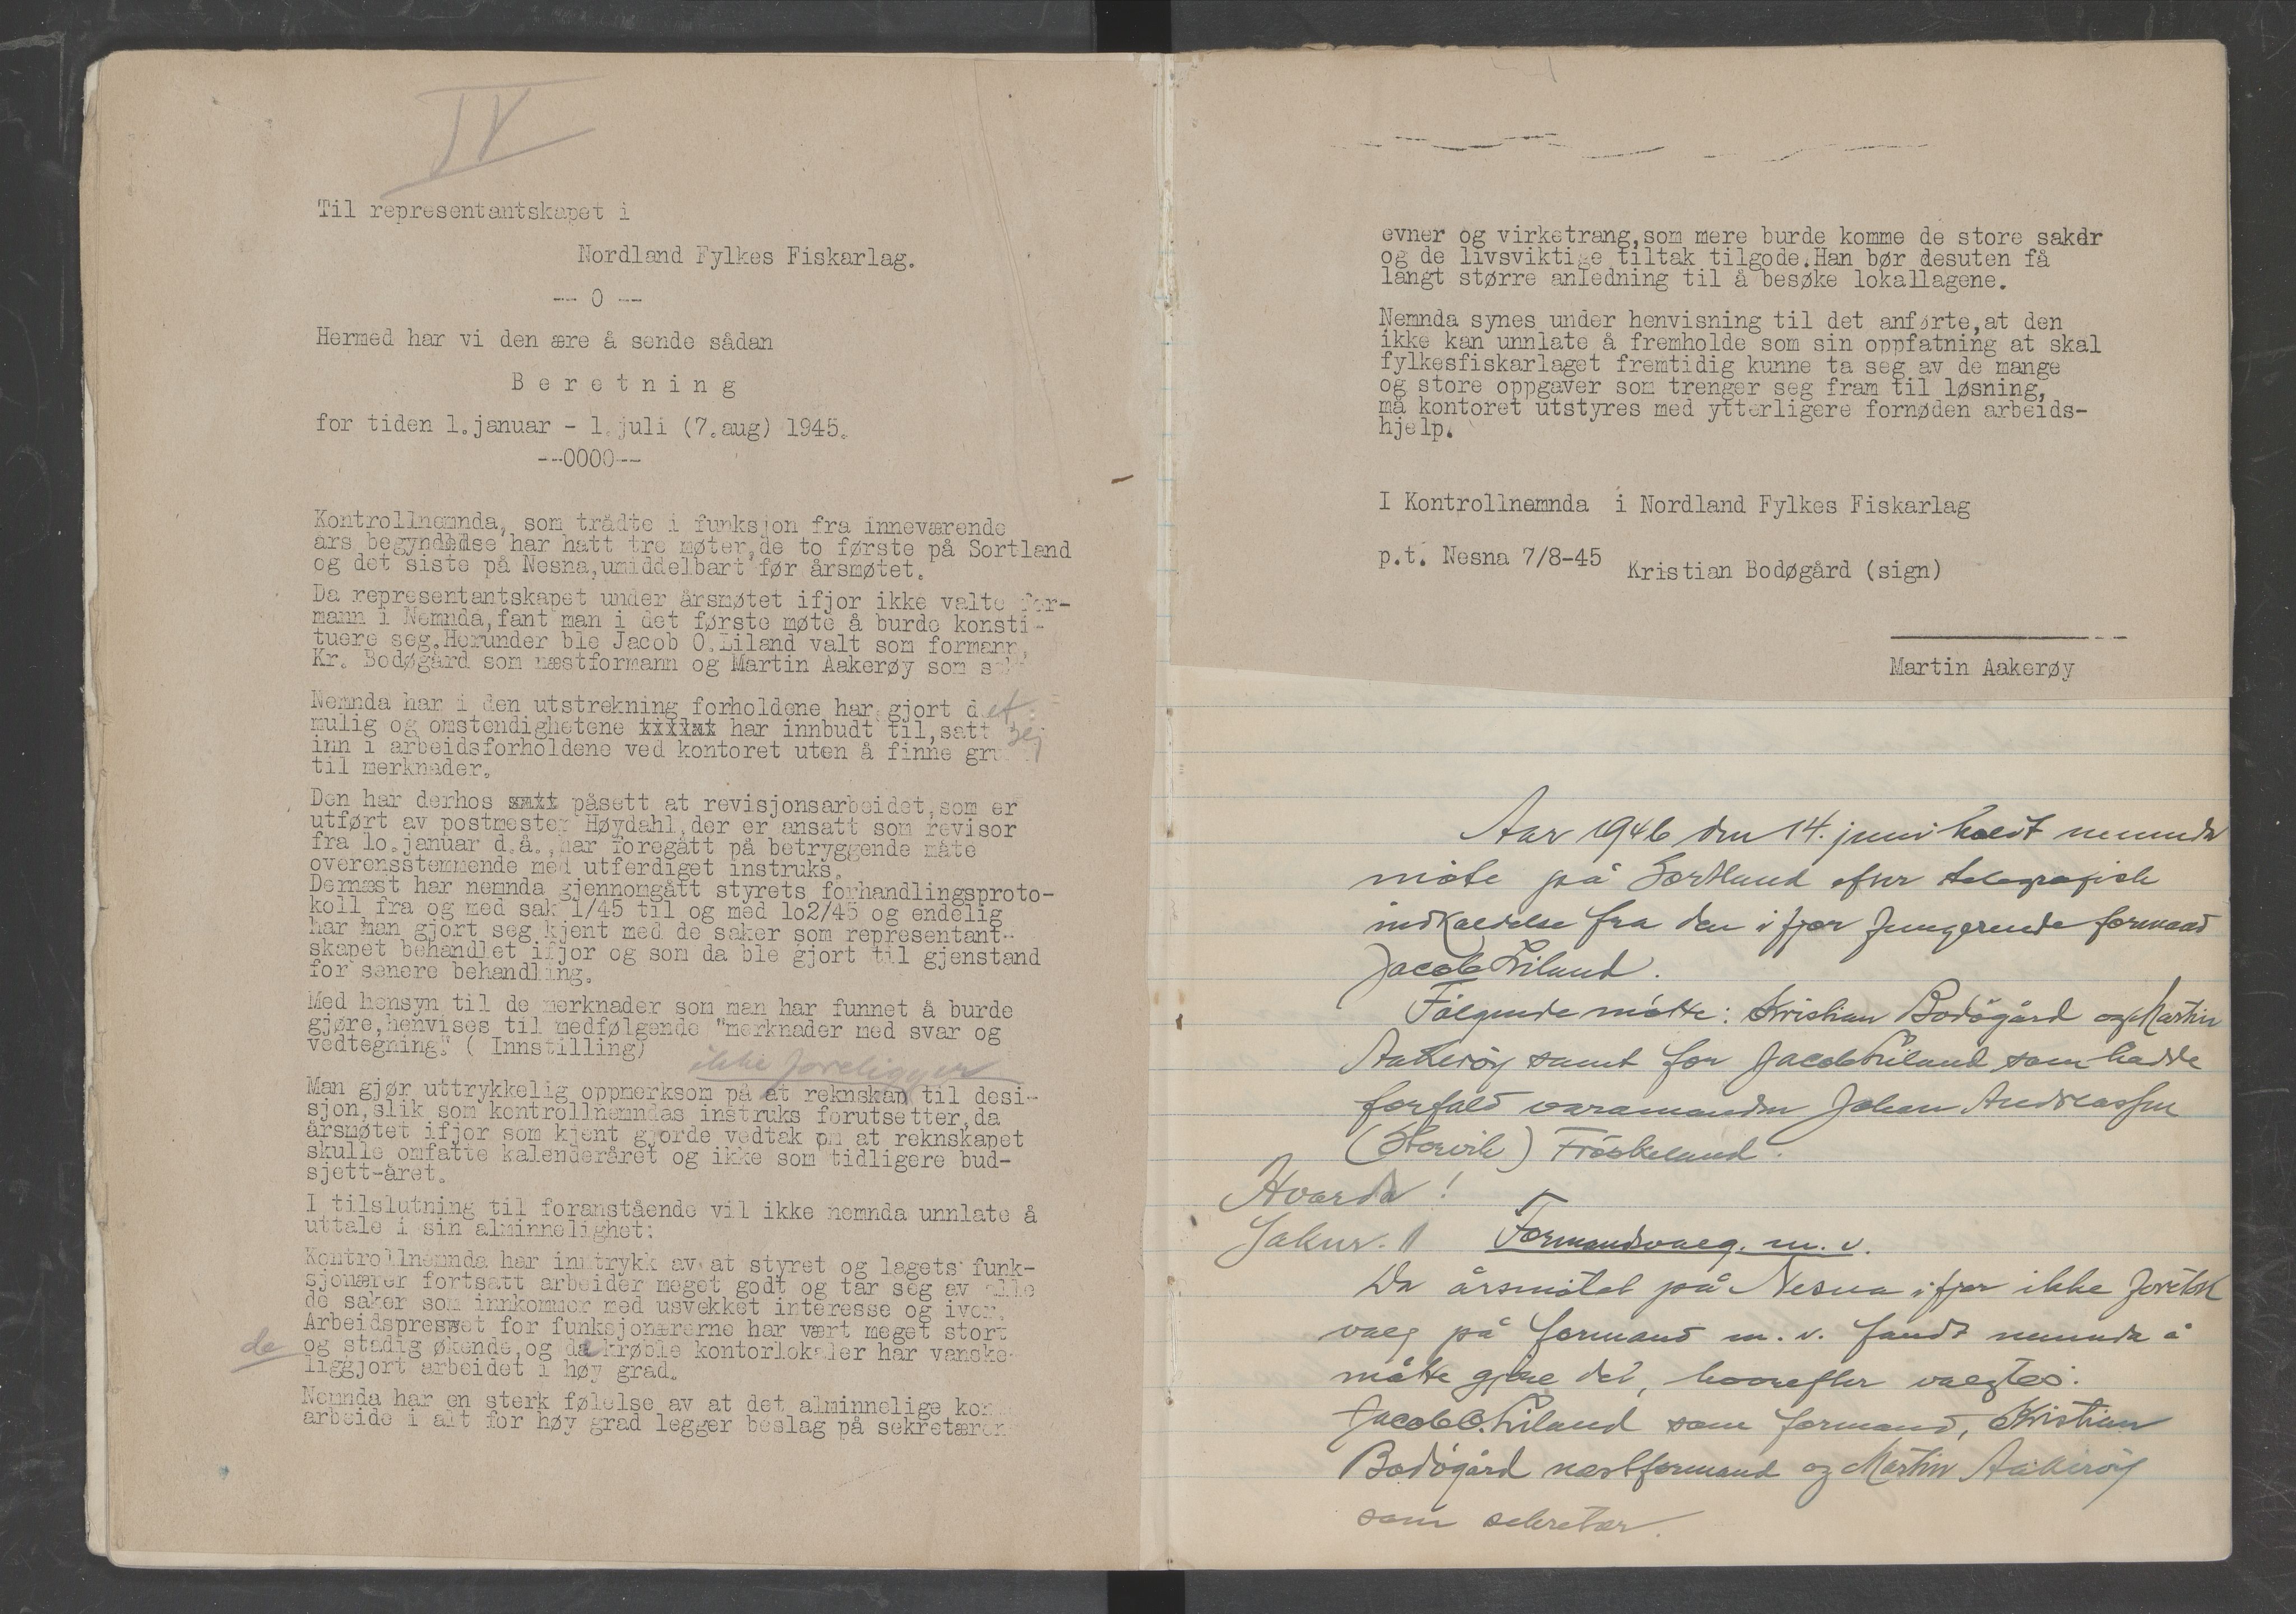 IV
Til representantskapet i
Nordland Fylkes Fiskarlag.
-- 0 --
Hermed har vi den ære å sende sådan
Beretning
for tiden 1.januar - 1.juli (7.aug) 1945.
---0000---
Kontrollnemnda, som trådte i funksjon fra inneværende
års begyndelse har hatt tre møter,de to første på Sortland
og det siste på Nesna,umiddelbart før årsmøtet.
Da representantskapet under årsmøtet ifjor ikke valte for-
mann i Nemnda,fant man i det første møte å burde konsti-
tuere seg.Herunder ble Jacob O.Liland valt som formann,
Kr. Bodøgård som næstformann og Martin Aakerøy som
Nemnda har i den utstrekning forholdene har gjort det
mulig og omstendighetene har innbudt til,satt seg
inn i arbeidsforholdene ved kontoret uten å finne
til merknader.
Den har derhos påsett at revisjonsarbeidet,som er
utført av postmester Høydahl,der er ansatt som revisor
fra 1o.januar d.å.,har foregått på betryggende måte
overensstemmende med utferdiget instruks.
Dernæst har nemnda gjennomgått styrets forhandlingsproto-
koll fra og med sak 1/45 til og med 1o2/45 og endelig
har man gjort seg kjent med de saker som representant-
skapet behandlet ifjor og som da ble gjort til gjenstand
for senere behandling.
Med hensyn til de merknader som man har funnet å burde
gjøre,henvises til medfølgende "merknader med svar og
vedtegning" ( Innstilling)
ikke foreligger
Man gjør uttrykkelig oppmerksom på at reknskap til desi-
sjon,slik som kontrollnemndas instruks forutsetter,da
årsmøtet ifjor som kjent gjorde vedtak om at reknskapet
skulle omfatte kalenderåret og ikke som tidligere bud-
sjett-året.
I tilslutning til foranstående vil ikke nemnda unnlate å
uttale i sin alminnelighet:
Kontrollnemnda har inntrykk av at styret og lagets funk-
sjonærer fortsatt arbeider meget godt og tar seg av alle
de saker som innkommer med usvekket interesse og iver.
Arbeidspresset for funksjonærerne har vært meget stort
de og stadig økende,og da krøble kontorlokaler har vanske-
liggjort arbeidet i høy grad.
Nemnda har en sterk følelse av at det alminnelige
arbeide i alt for høy grad legger beslag på sekretæren
evner og virketrang,som mere burde komme de store saker
og de livsviktige tiltak tilgode.Han bør desuten få
langt større anledning til å besøke lokallagene.
Nemnda synes under henvisning til det anførte,at den
ikke kan unnlate å fremholde som sin oppfatning at skal
fylkesfiskarlaget fremtidig kunne ta seg av de mange
og store oppgaver som trenger seg fram til løsning,
må kontoret utstyres med ytterligere fornøden arbeids-
hjelp.
I Kontrollnemnda i Nordland Fylkes Fiskarlag
p.t. Nesna 7/8-45
Kristian Bodøgård (sign)
Martin Aakerøy
Aar 1946 den 14. juni holdt nemnda
møte på Sortland efter telegrafisk
indkaldelse fra den ifjor fungerende formand
Jacob Liland.
Følgende møtte: Kristian Bodøgård og Martin
Aakerøy samt for Jacob Liland som hadde
forfald varamanden Johan Andreassen
(Storvik) Frøskeland.
Hvorda !
Saknr. 1 Formandsvalg. m. v.
Da årsmøtet på Nesna ifjor ikke foretok
valg på formand m. v. fandt nemnda å
måtte gjøre det, hvorefter valgtes:
Jacob O. Liland som formand, Kristian
Bodøgård næstformand og Martin Aakerøy
som sekretær.